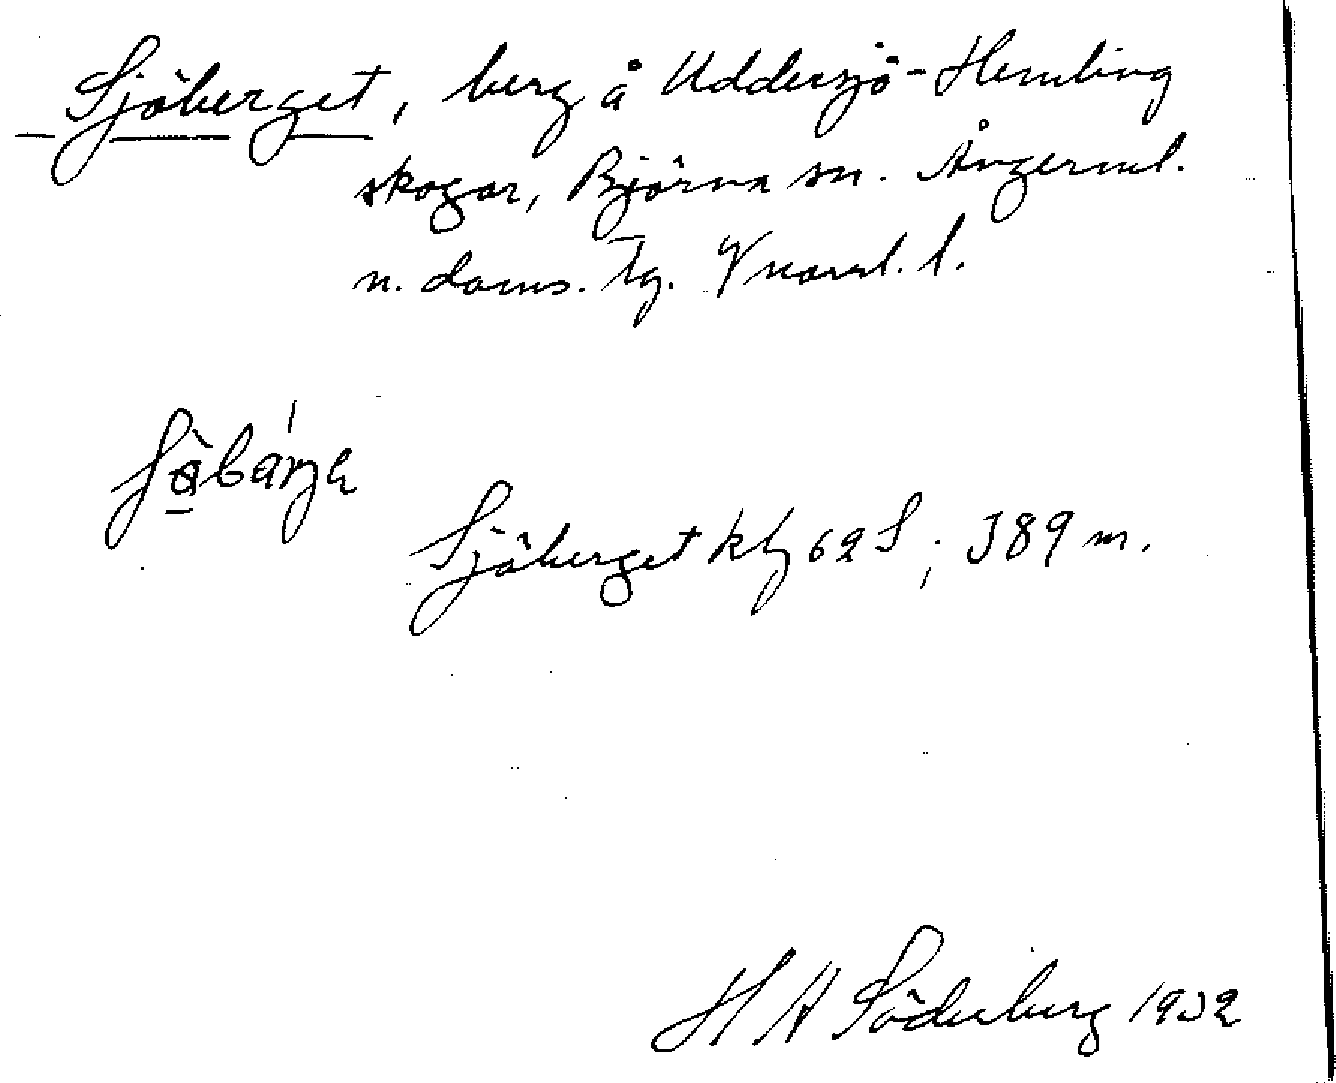 Sjöberget, berg å Uddersjö-Hemling
skogar, Björna sn. Ångerml.
n. doms. Tg. Vnorrl. l.
Sjöberget kbl 62 S; 389 m.
H A Söderberg 1932